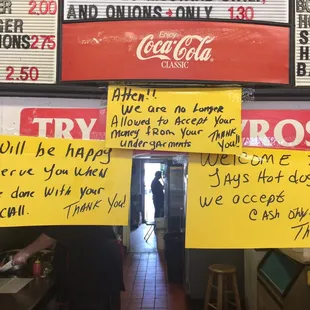 2.00
AND ONIONS + ONLY 1.30
GER
ONIONS 2.75
2.50
Enjoy
Coca-Cola
CLASSIC
Atten!!
We are no Longer
Allowed to Accept Your
money from Your
undergarments
THANK
You!!
TRY
YROS
Will be happy
erve You WHen
e done WitH Your
CALL.
THANK You!
WELCOME
JAYS Hot do
We accept
CASH ONLY
TH